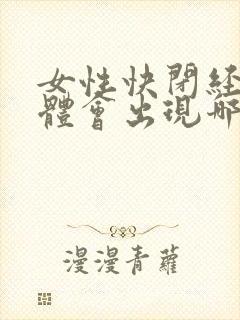 女性快閉經
體會出現哪
漫漫青蘿